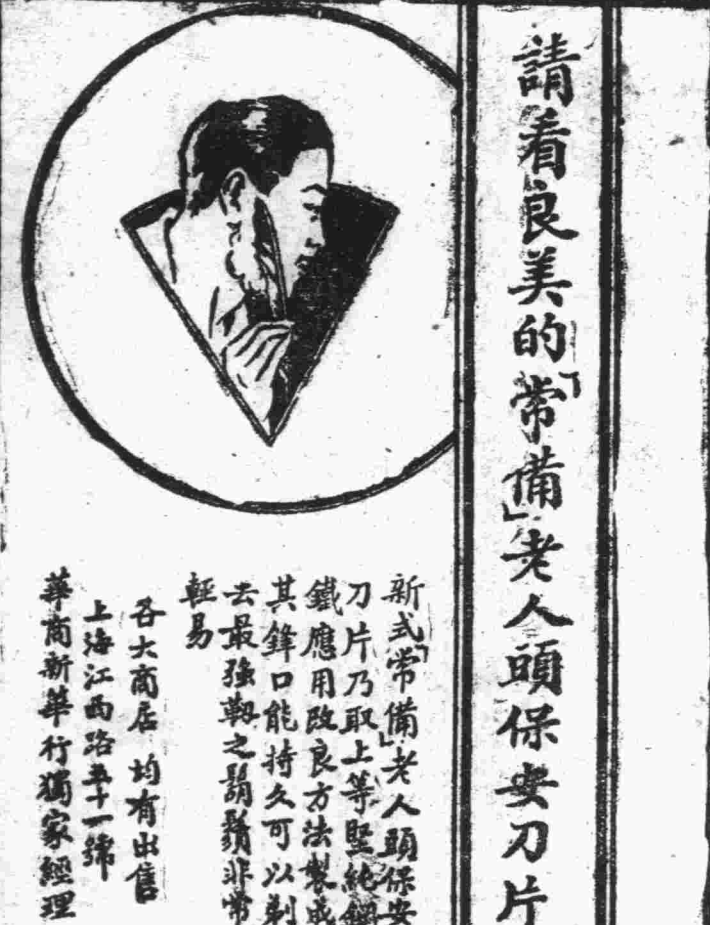 請看良美的「常備」老人頭保安刀片
新式「常備」老人頭保安
刀片乃取上等堅純鋼
鐵應用改良方法製成
其鋒口能持久可以剃
去最強韌之鬍鬚非常
輕易
各大商店 均有出售
上海江西路五十一號
華商新華行獨家經理